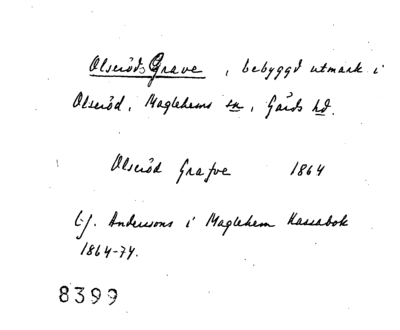 Olseröds Grave, bebyggd utmark i
Olseröd, Maglehems sn, Gärds hd.
Olseröd Grafve 1864
L.J. Anderssons i Maglehem Kassabok
1864-74.
8399